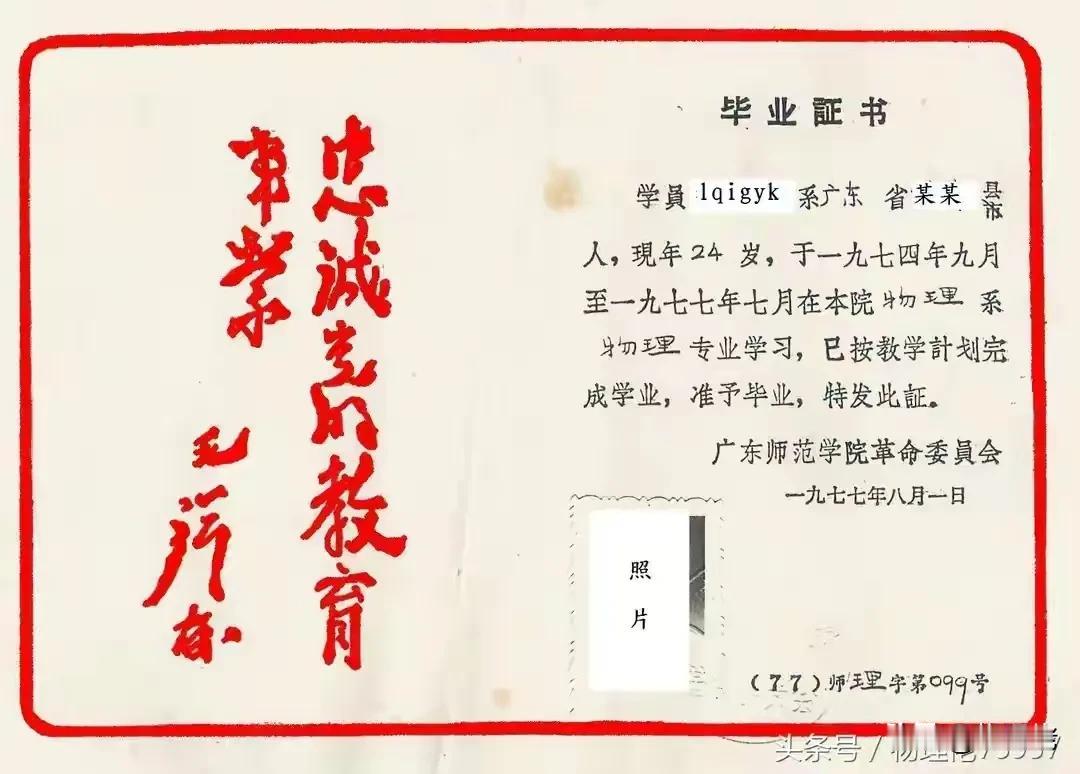 忠诚党的教育
事業
毛泽东
毕业証书
学員 lqigyk 系广东 省某某 县市
人，現年24岁，于一九七四年九月
至一九七七年七月在本院物理系
物理专业学习，已按教学計划完
成学业，准予毕业，特发此証。
广东师范学院革命委員会
一九七七年八月一日
照
片
(77)师理字第099号
头条号